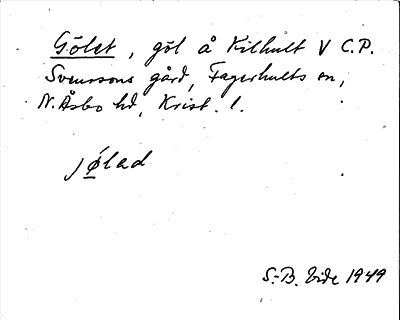 Gölet, göl å Kilhult V C.P.
Svenssons gård, Fagerhults sn,
N. Åsbo hd, Krist. l.
jølad
S.-B. Vide 1949